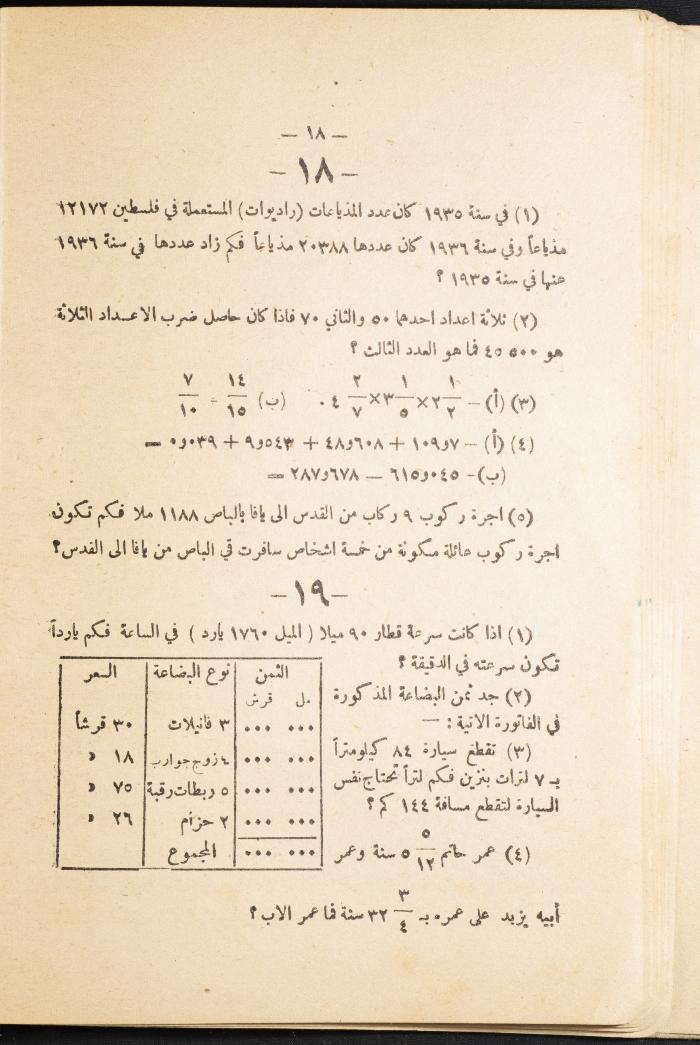 — ١٨ —
—١٨—
(١) في سنة ١٩٣٥ كان عدد المذياعات (راديوات) المستعملة في فلسطين ١٢١٧٢
مذياعاً وفي سنة ١٩٣٦ كان عددها ٢٠٣٨٨ مذياعاً فكم زاد عددها في سنة ١٩٣٦
عنها في سنة ١٩٣٥ ؟
(٢) ثلاثة اعداد احدهما ٥٠ والثاني ٧٠ فاذا كان حاصل ضرب الاعــداد الثلاثة
هو ٤٥٥٠٠٠ فما هو العدد الثالث ؟
(٣) (أ) — ٢ ١/٢ × ٣ ١/٥ × ٤ ٢/٧ . (ب) ١٤/١٥ ÷ ٧/١٠
(٤) (أ) — ٧و١٠٩ + ٦٠٨و٤٨ + ٥٤٣و٩ + ٠٣٩و٠ =
(ب) - ٠٤٥و٦١٥ — ٦٧٨و٢٨٧ =
(٥) اجرة ركوب ٩ ركاب من القدس الى يافا بالباص ١١٨٨ ملا فـكم تـكون
اجرة ركوب عائلة مـكونة من خمسة اشخاص سافرت في الباص من يافا الى القدس؟
—١٩—
(١) اذا كانت سرعة قطار ٩٠ ميلا ( الميل ١٧٦٠ يارد ) في الساعة فـكم يارداً
تـكون سرعته في الدقيقة ؟
(٢) جد ثمن البضاعة المذكورة
في الفاتورة الاتية : —
(٣) تقطع سيارة ٨٤ كيلومتراً
بـ ٧ لترات بنزين فـكم لتراً تحتاج نفس
السيارة لتقطع مسافة ١٤٤ كم ؟
(٤) عمر حاتم ٥ ٥/١٢ سنة وعمر
أبيه يزيد على عمره بـ ٣٢ ٣/٤ سنة فما عمر الاب ؟
الثمن نوع البضاعة السعر
مل قرش
... ... ٣ فانيلات ٣٠ قرشاً
... ... ٤ زوج جوارب ١٨ «
... ... ٥ ربطات رقبة ٧٥ «
... ... ٢ حزام ٢٦ «
... ... المجموع